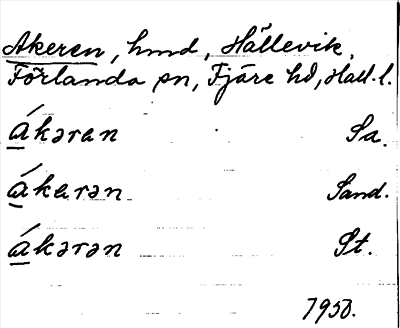 Åkeren, hmd, Hällevik,
Förlanda sn, Fjäre hd, Hall. l.
åkəran Sa.
åkeran Sand.
åkərən St.
1950.